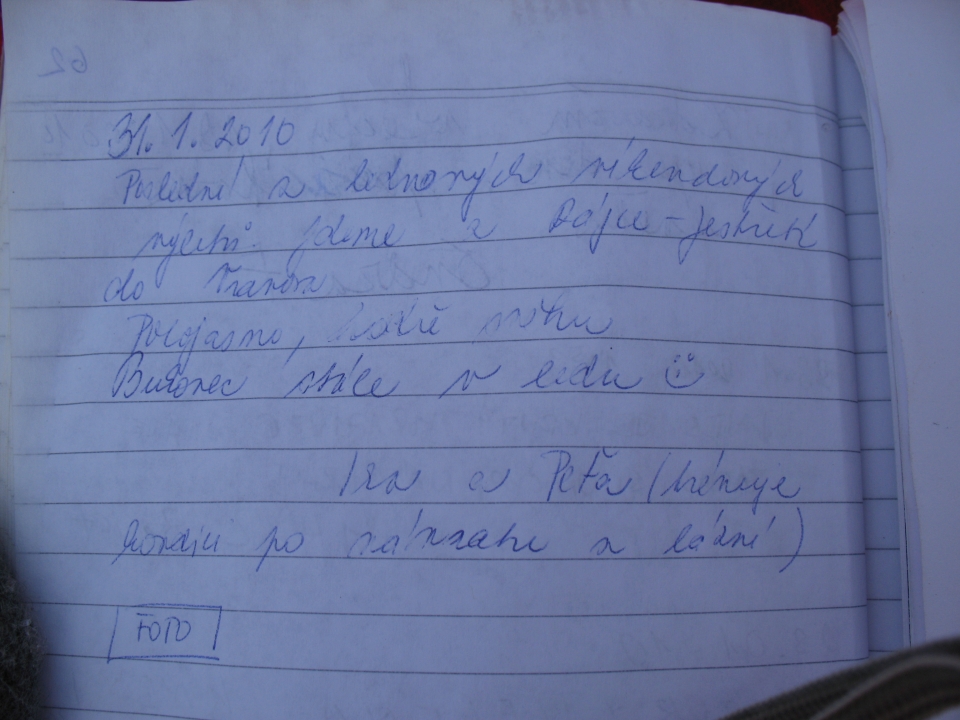 31.1.2010
Poslední z lednových víkendových
výletů. Jdeme z Rájce-Jestřebí
do
Polojasno, hodně sněhu
Býkovec stále v ledu ☺
Iva a Peťa (trénuje
kondici po návratu z lázní)
FOTO